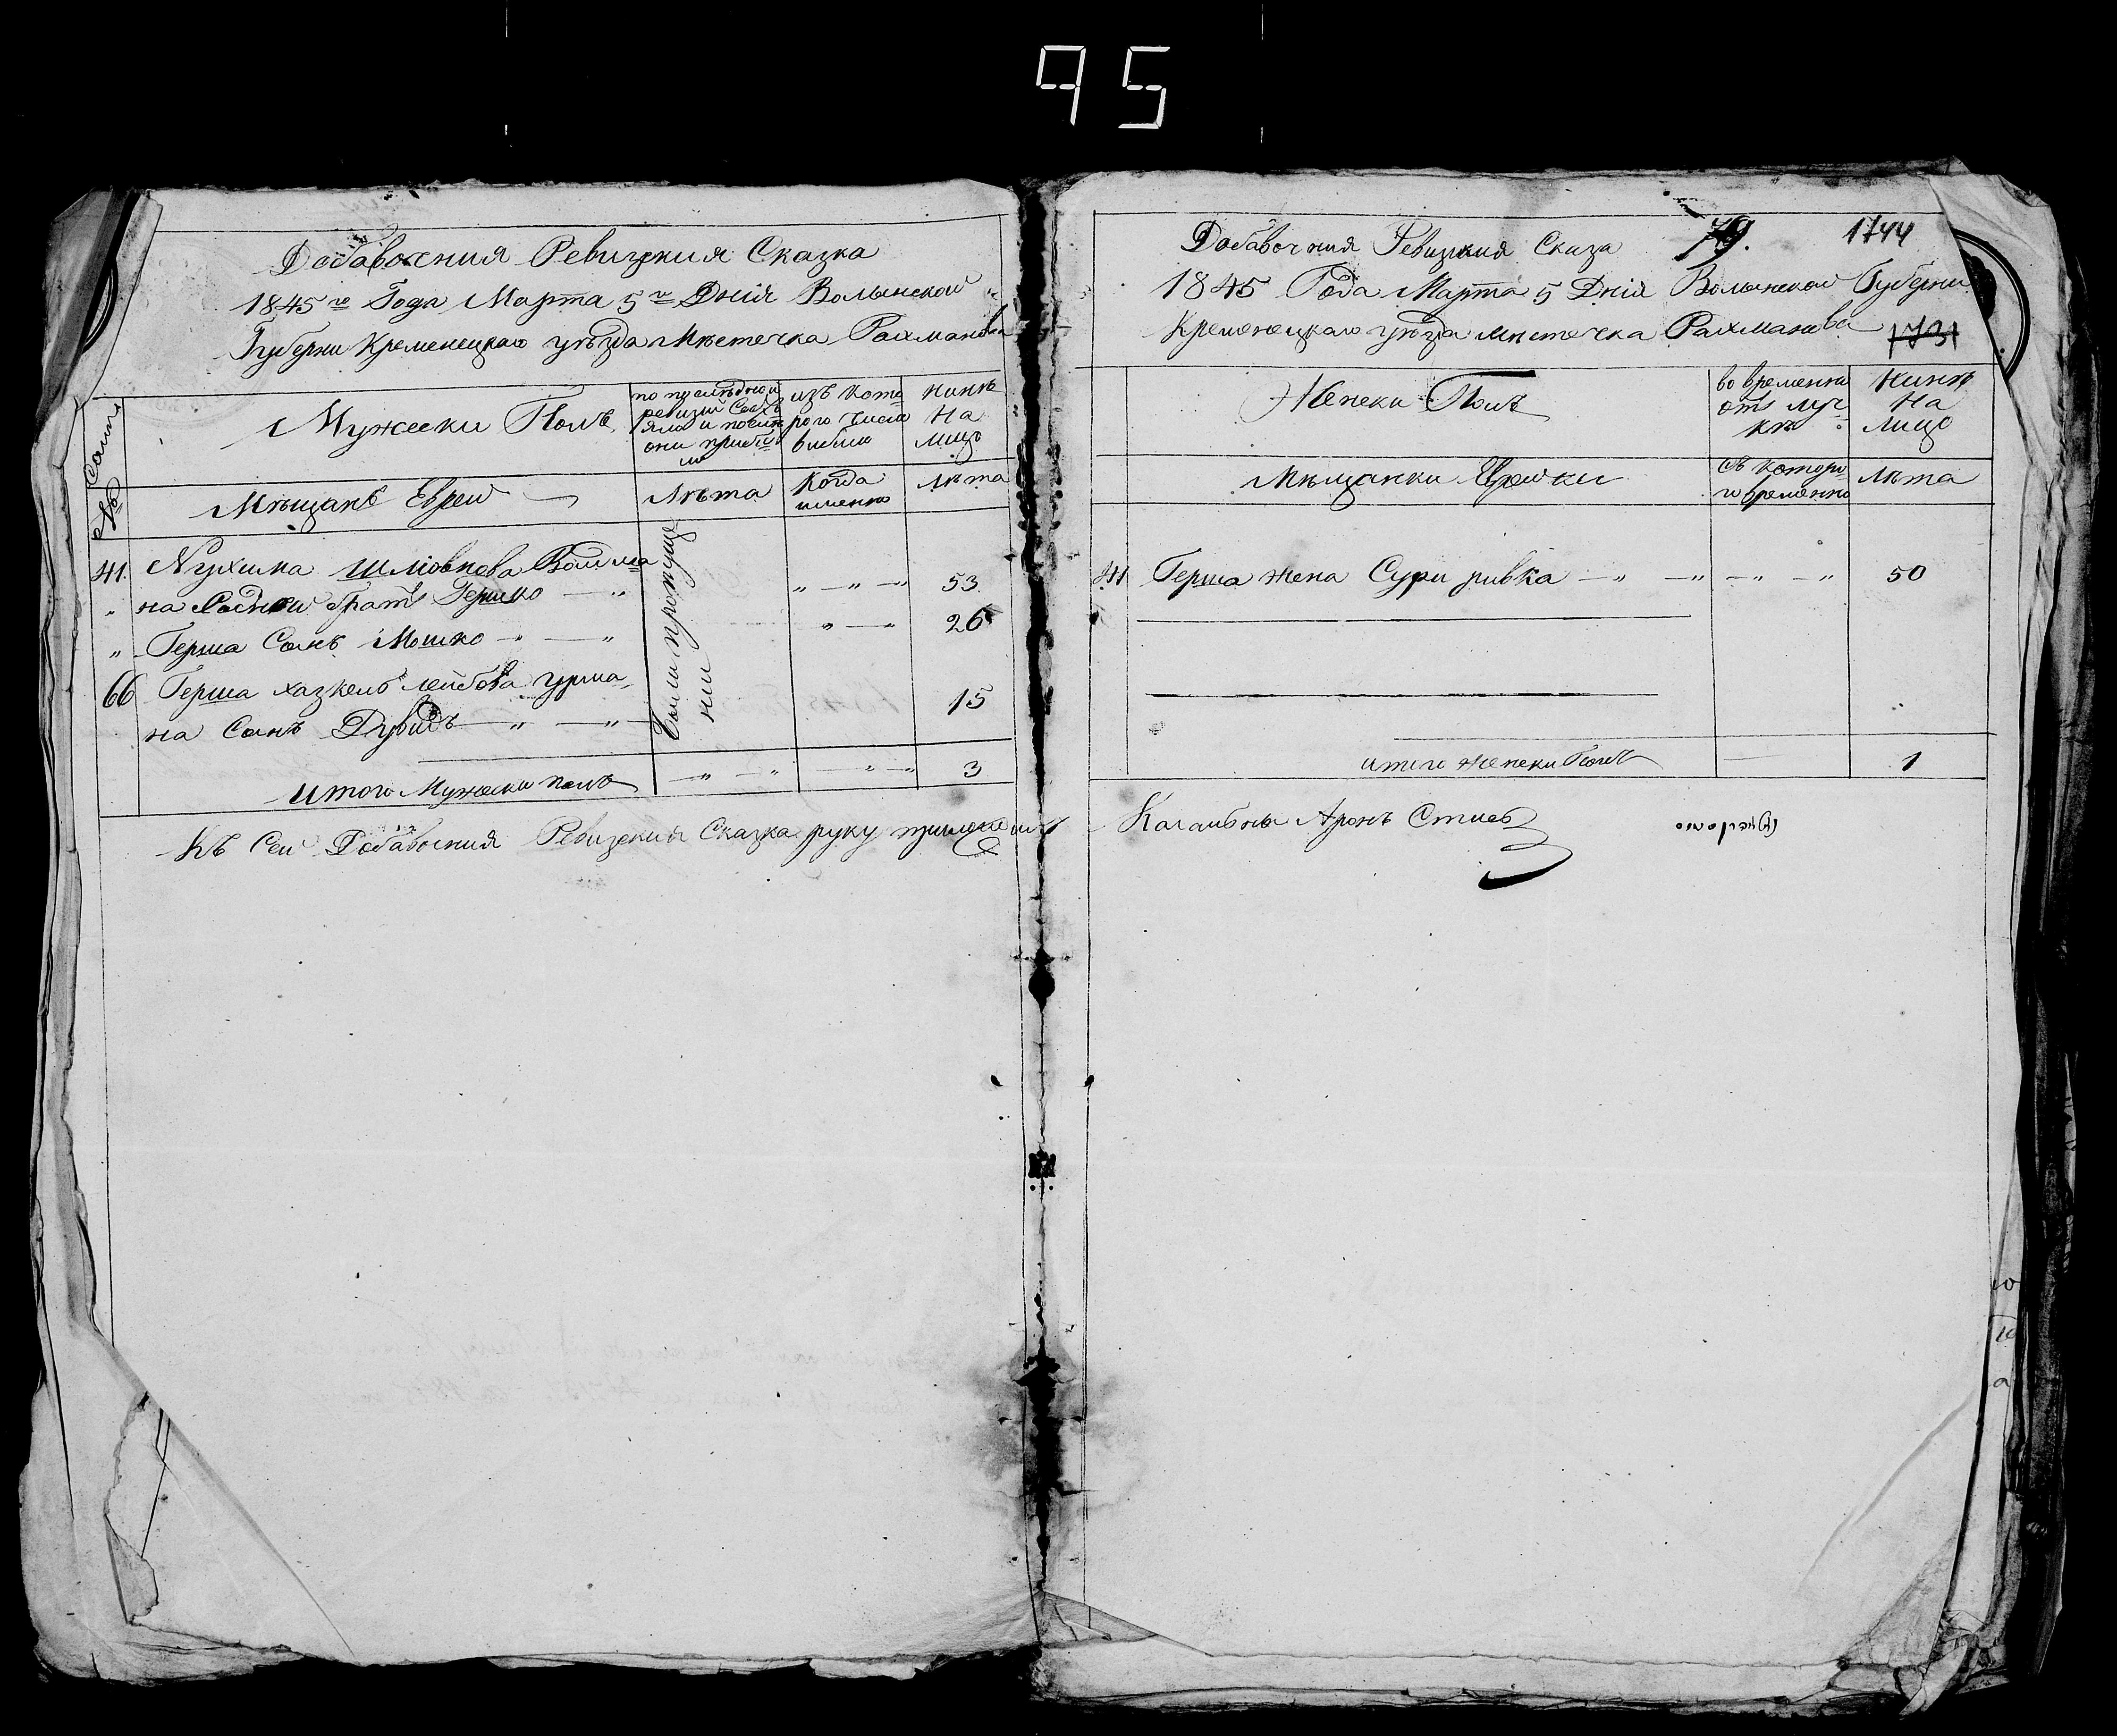 95
Добавочния Ревизкия Сказка
1845 го Года Марта 5 го Дния Волынской
Губерни Кременецкаго уезда Местечка Рахманова
№ Семи
Мужески Полъ
по последной ревизии
они
изъ кото
рого числа
выбыло
нине
на
лицо
Мещане Евреи
Лѣта
Когда
именно
Лѣта
41. Нухима Шліовнова Вайма
на Родной братъ Гершко — „ „ — „ — „ 53
„ Герша Сынъ Мошко — „ — „ „ — „ 26
66 Герша хазкель лейбова гурма
на Сынъ Дувидъ — „ — „ 15
Были пропуще
нии
итого Мужески полъ — „ — „ „ — „ 3
Къ Сеи Добавочния Ревизкия Сказка руку приложилъ
79. 1744
Добавочния Ревизкия Сказа
1845 Года Марта 5 Дния Волынской Губерни
Кременецкаго уезда местечка Рахманова
1731
Женски Полъ
во временно
от луч
ке
нине
на
лицо
Мещанки Еврейки
съ котори
го временно
Лѣта
41 Герша жена Сури ривка — „ — „ — „ — „ 50
итого женски Полъ — 1
Кагалны Аронъ Стиеръ